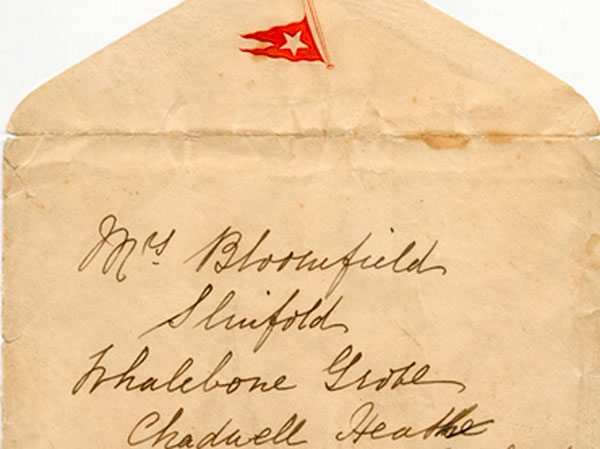 Mrs Bloomfield
Slinfold
Whalebone Grove
Chadwell Heathe